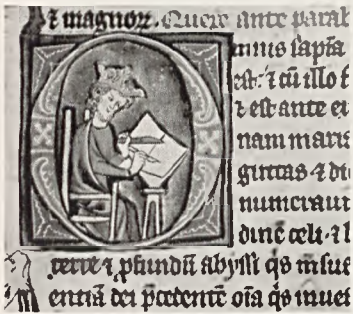 ⁊ magnoꝝ. Quere ante parab
mnis sapīa
est. ⁊ cū illo f
⁊ est ante eu
nam maris
guttas ⁊ di
numeraut
dinē celi. ⁊ l
terre ⁊ ꝓfundū abyssi qͥs
entiā dei p̄cedentē oīa qͥs inuest